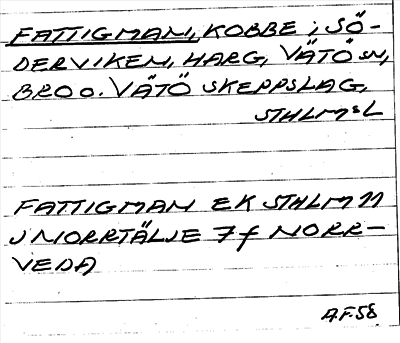 FATTIGMAN, KOBBE i SÖ-
DERVIKEN, HARG, VÄTÖ SN,
BRO O. VÄTÖ SKEPPSLAG,
STHLMS L
FATTIGMAN EK STHLM 11
J NORRTÄLJE 7 f NORR-
VEDA
AF58